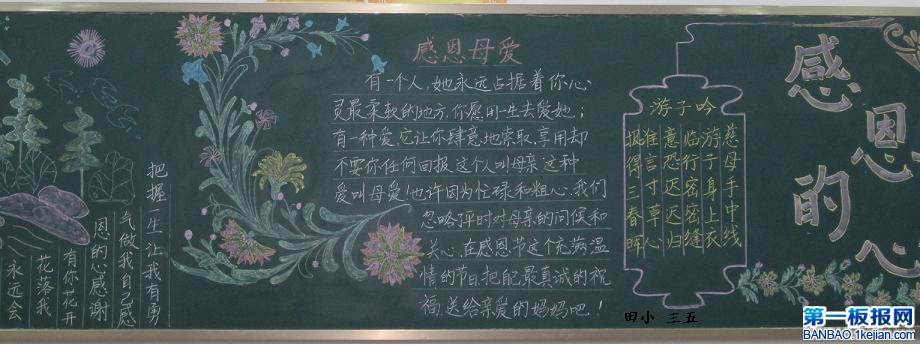 把握一生让我有勇
气做我自己感
恩的心感谢
有你花开
花落我
永远会
感恩母爱
有一个人,她永远占据着你心
灵最柔软的地方,你愿用一生去爱她;
有一种爱,它让你肆意地索取,享用却
不要你任何回报,这个人叫母亲,这种
爱叫母爱!也许因为忙碌和粗心,我们
忽略了平时对母亲的问候和
关心,在感恩节这个充满温
情的节日,把配最真诚的祝
福送给亲爱的妈妈吧!
游子吟
慈母手中线
游子身上衣
临行密密缝
意恐迟迟归
谁言寸草心
报得三春晖
感恩的心
田小 三五
第一板报网
BANBAO.1kejian.com